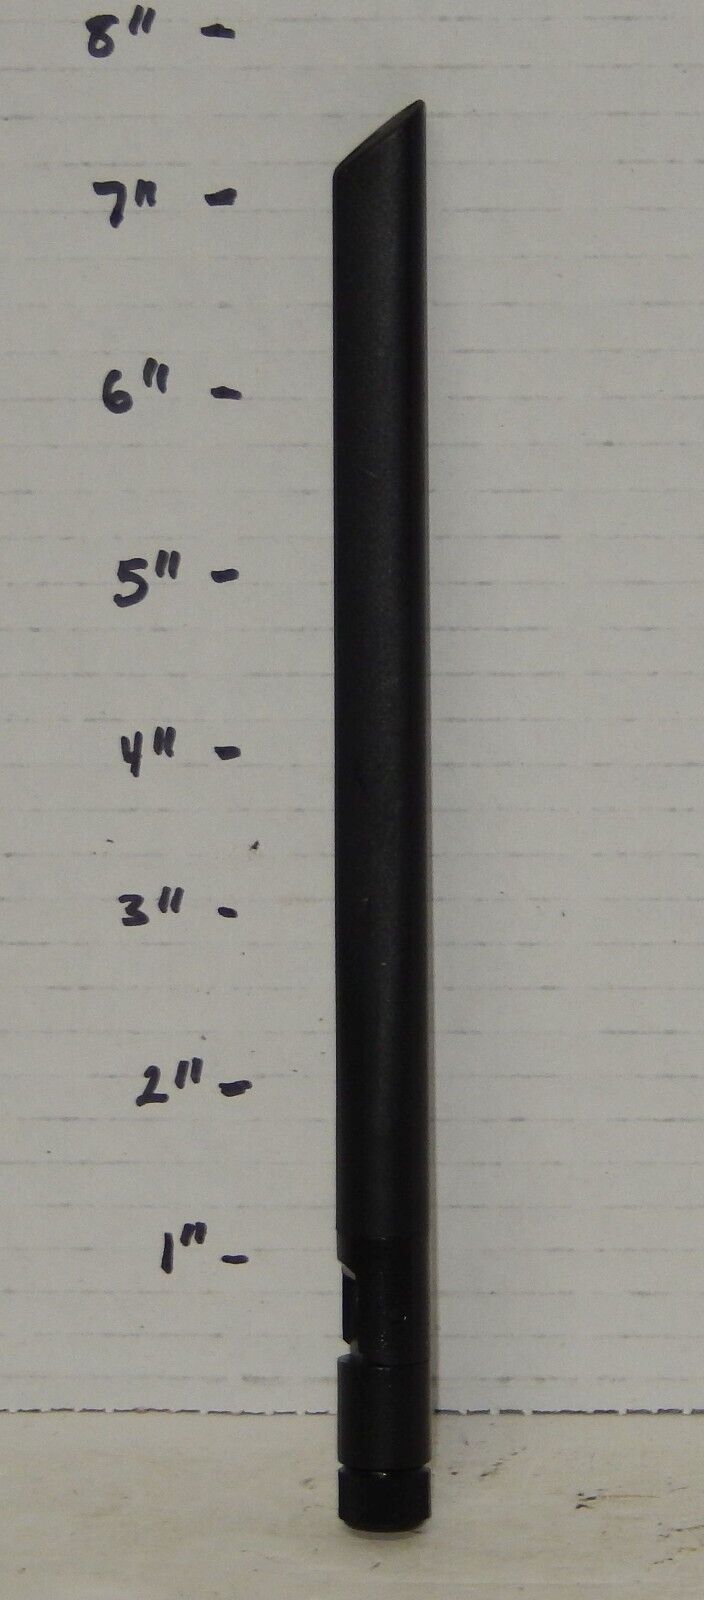 8" -
7" -
6" -
5" -
4" -
3" -
2" -
1" -